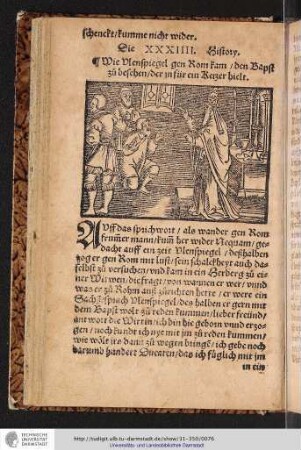 schenckt/kumme nicht wider.
Die XXXIIII. History.
¶ Wie Vlenspiegel gen Rom kam/den Bapst
zů besehen/der jn für ein Ketzer hielt.
AVff das sprichwort/als wander gen Rom
frummer mann/kum̃ her wider Nequam/ge
dacht auff ein zeit Vlenspiegel/deßhalben
zog er gen Rom mit lust/sein schalckheyt auch da
selbst zů versuchen/vnd kam in ein Herberg zů ei
ner Witwen/die fragt/von wannen er wer/vnnd
was er zů Rohm auß zůrichten hette/er were ein
Sachß sprach Vlenspiegel/des halben er gern mit
dem Bapst wolt zů reden kummen/lieber freund/
ant wort die Wirtin/ich bin hie geborn vnnd erzo
gen/noch kunde ich nye mit jm zů reden kummen/
wie wölt jrs dann zů wegen bringẽ/ich gebe noch
darumb hundert Ducaten/das ich füglich mit jm
in ein
TECHNISCHE
UNIVERSITÄT
DARMSTADT
http://tudigit.ulb.tu-darmstadt.de/show/31-350/0076
Universitäts- und Landesbibliothek Darmstadt